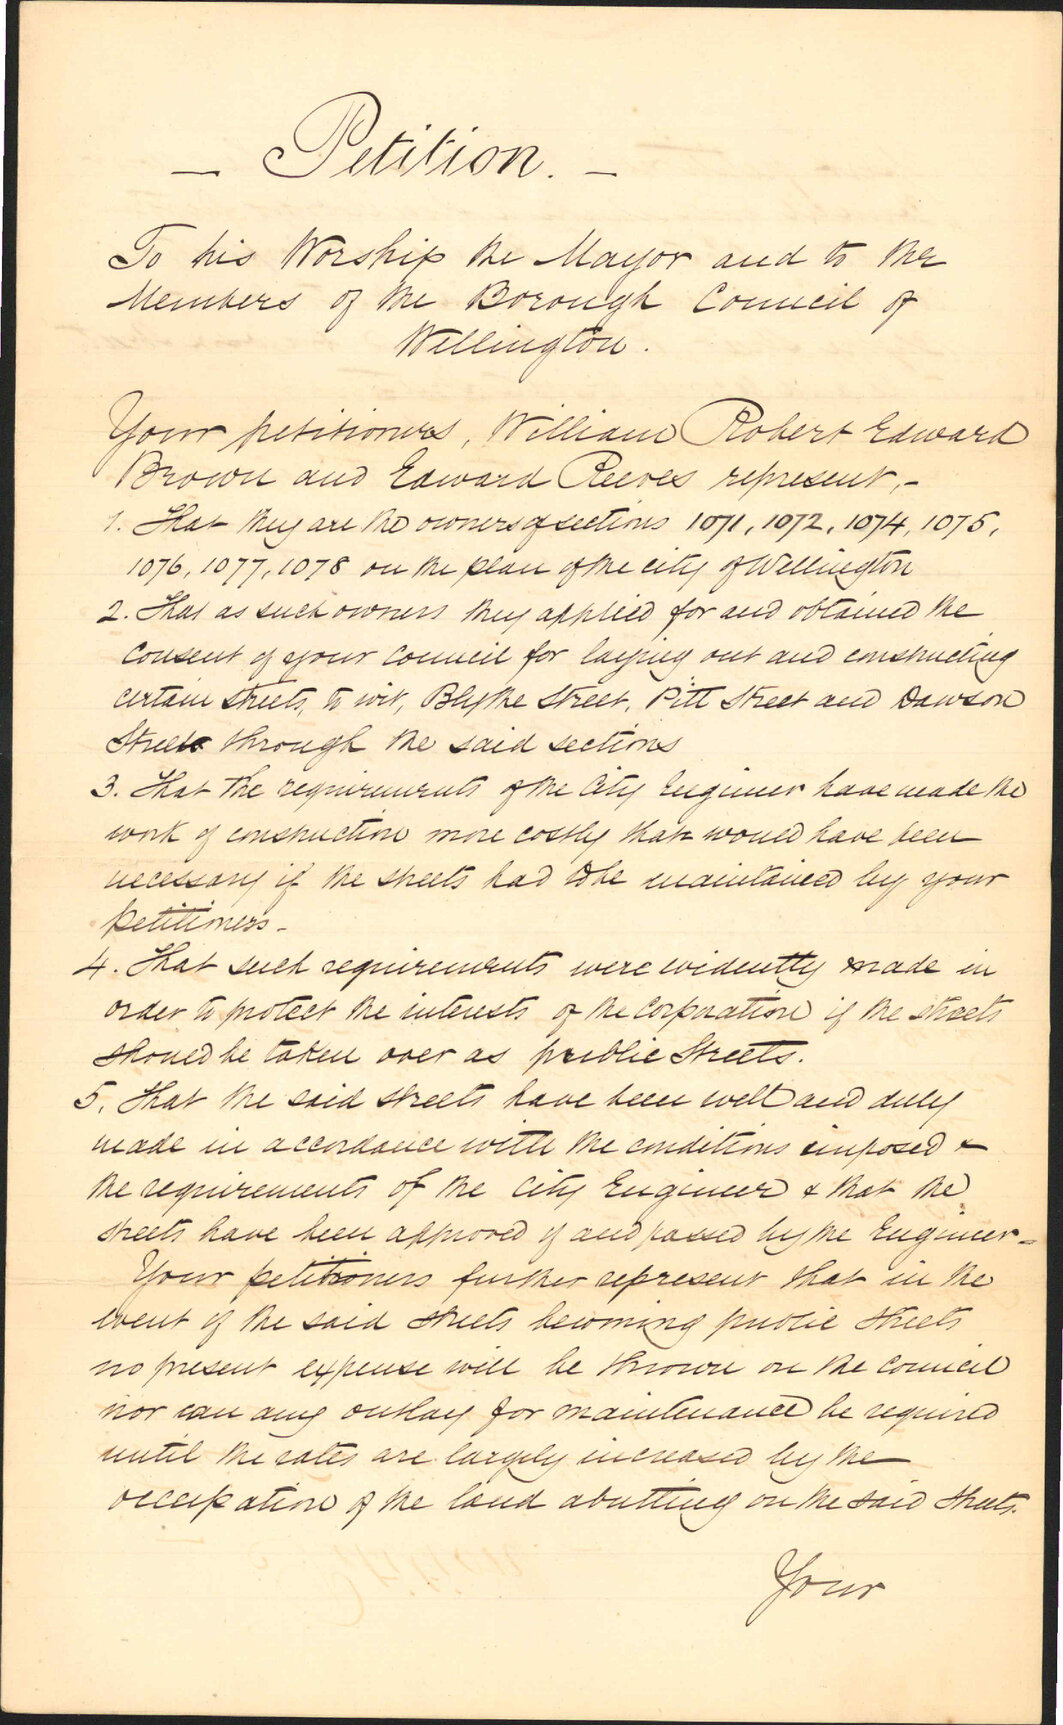 — Petition. —
To his Worship the Mayor and to the
Members of the Borough Council of
Wellington.
Your petitioners, William Robert Edward
Brown and Edward Reeves represent,-
1. That they are the owners of sections 1071, 1072, 1074, 1075,
1076, 1077, 1078 on the plan of the city of Wellington
2. That as such owners they applied for and obtained the
consent of your Council for laying out and constructing
certain streets, to wit, Blythe Street, Pitt Street and Dawson
Street through the said sections
3. That the requirements of the City Engineer have made the
work of construction more costly than would have been
necessary if the streets had to be maintained by your
petitioners -
4. That such requirements were evidently made in
order to protect the interests of the Corporation if the streets
should be taken over as public Streets.
5. That the said streets have been well and duly
made in accordance with the conditions imposed &
the requirements of the City Engineer & that the
streets have been approved of and passed by the Engineer -
Your petitioners further represent that in the
event of the said streets becoming public streets
no present expense will be thrown on the Council
nor can any outlay for maintenance be required
until the rates are largely increased by the
occupation of the land abutting on the said streets.
Your